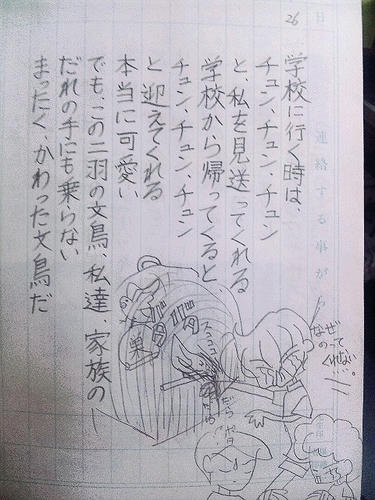 26
日
連絡する事がら
学校に行く時は、
チュン、チュン、チュン
と、私を見送ってくれる
学校から帰ってくると、
チュン、チュン、チュン
と迎えてくれる
本当に可愛い
でも、この二羽の文鳥、私達、家族の
だれの手にも乗らない
まったく、かわった文鳥だ
なぜ
のって
くれない…。
巣